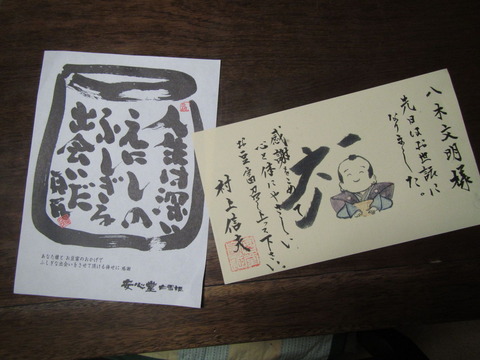 人生は深い
えにしの
ふしぎな
出会いだ
あなた様と お豆富のおかげで
ふしぎな出会いをさせて頂ける幸せに 感謝
安心堂
八木文明様
先日はお世話に
なりました。
感謝をこめて
心と体にやさしい
お豆富召し上って下さい
村上信夫